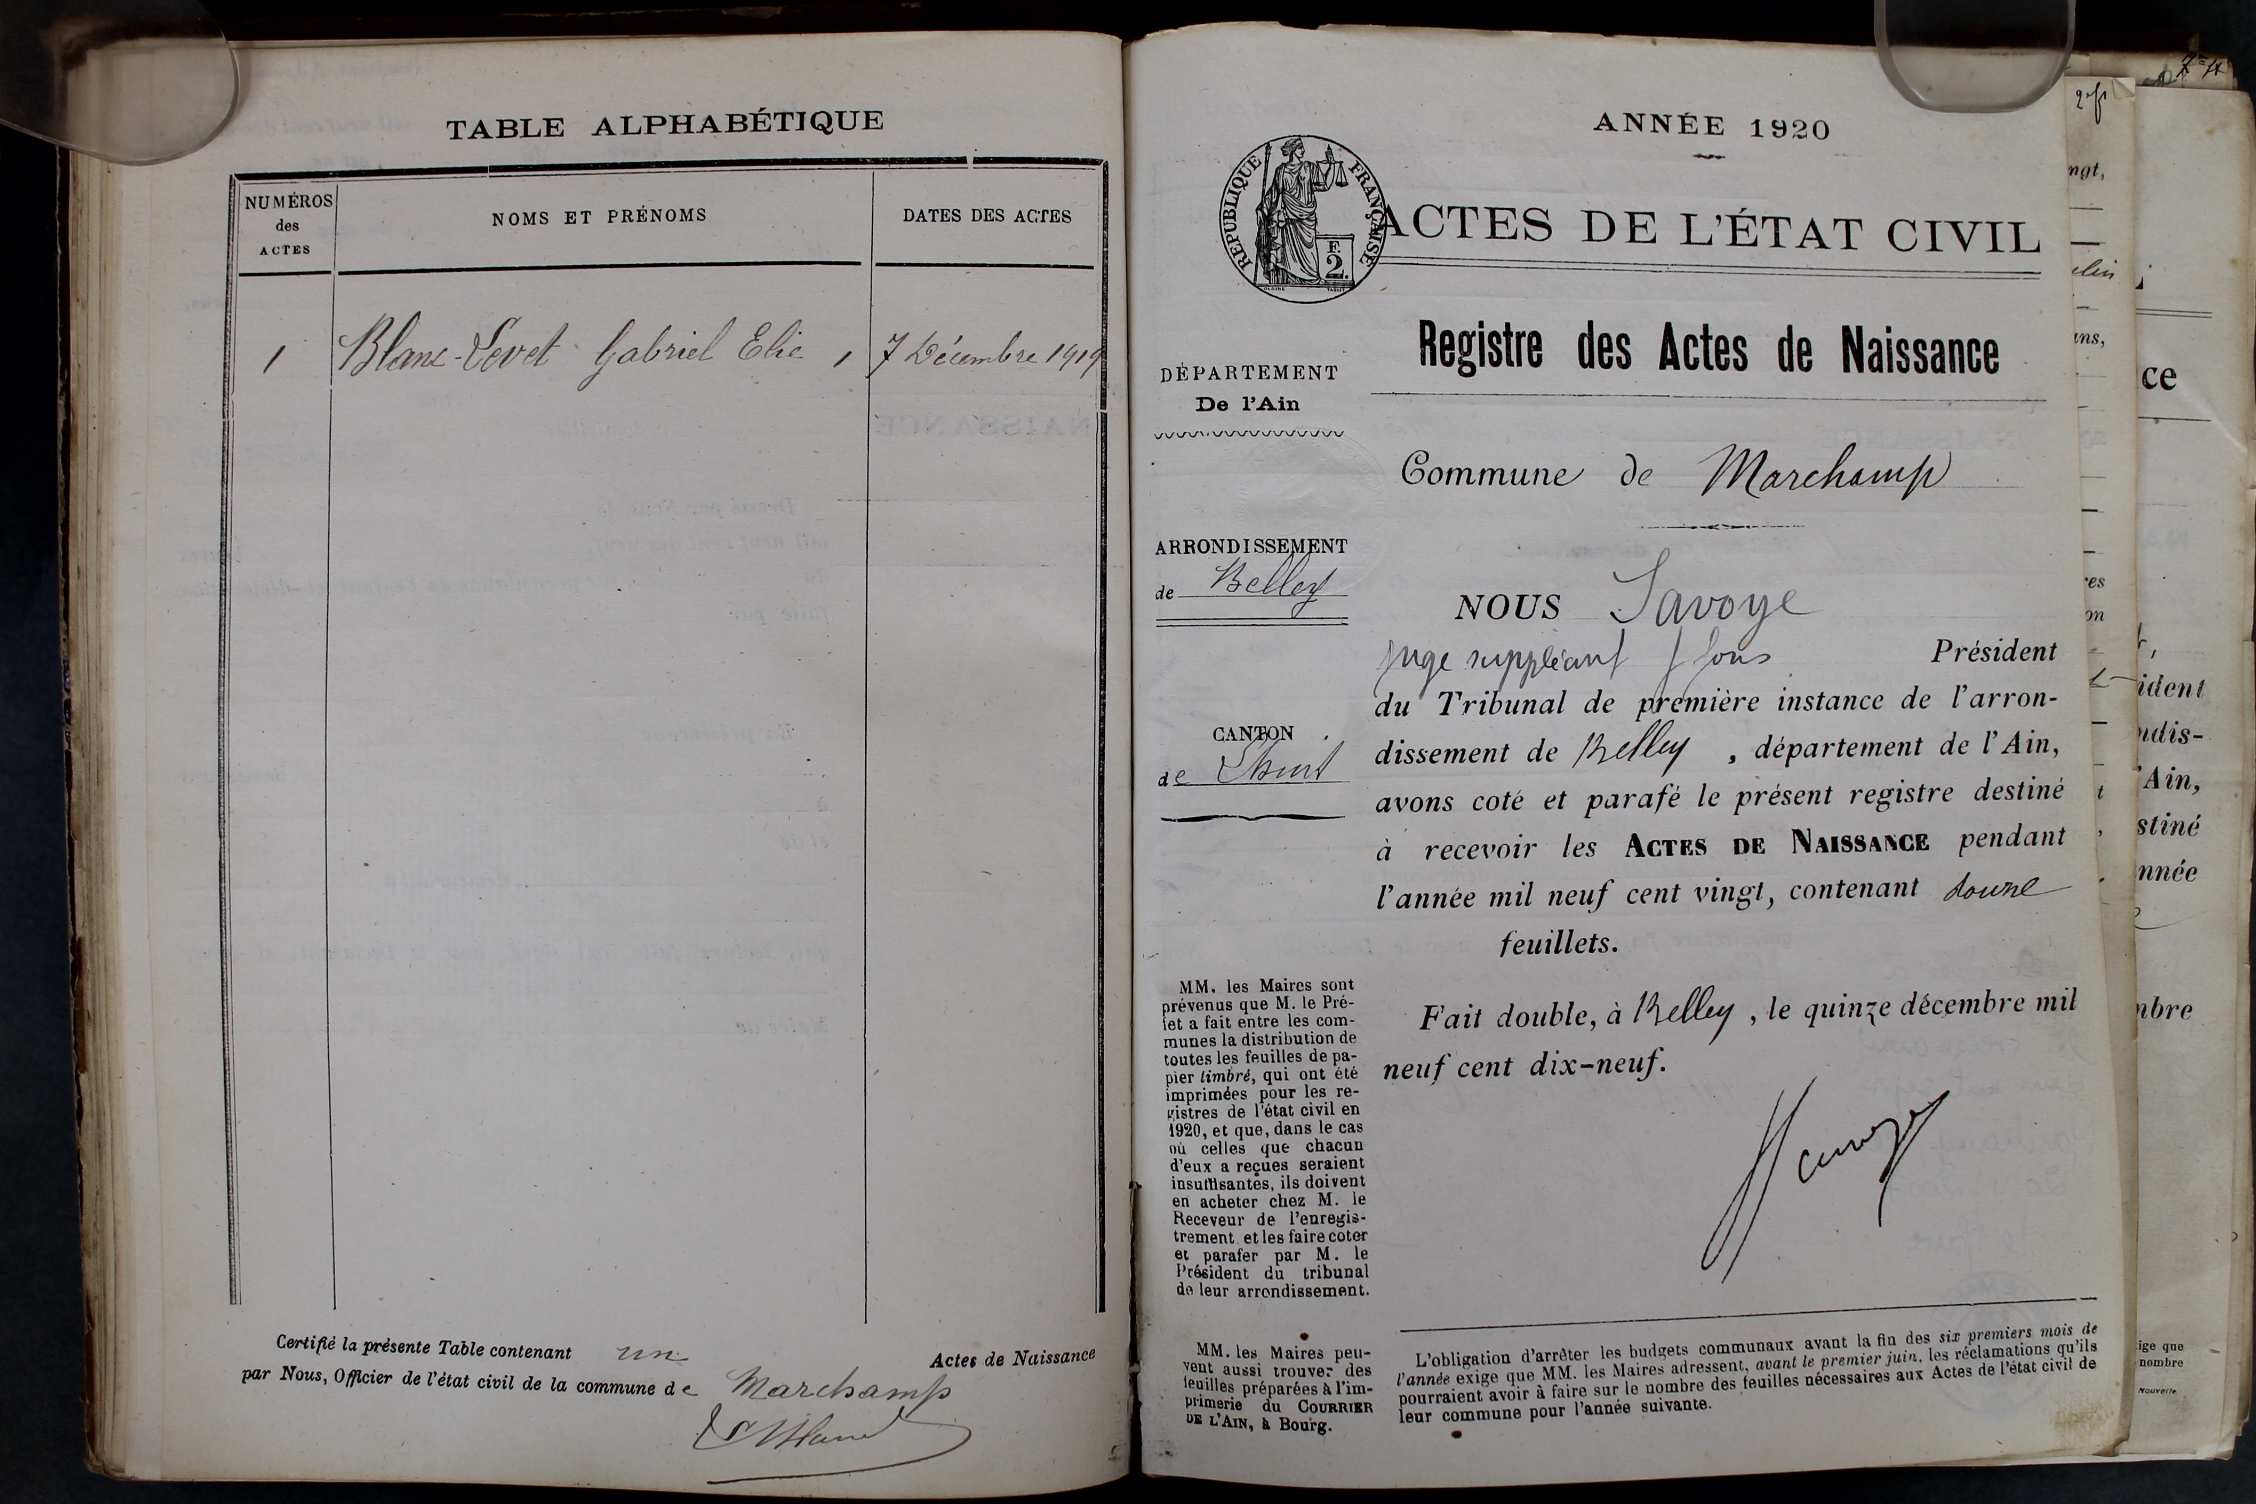 TABLE ALPHABÉTIQUE
NUMÉROS
des
ACTES
NOMS ET PRÉNOMS
DATES DES ACTES
1
Blanc-Levet Gabriel Elie
7 Décembre 1919
Certifié la présente Table contenant un Actes de Naissance
par Nous, Officier de l'état civil de la commune de Marchamp
ANNÉE 1920
RÉPUBLIQUE FRANÇAISE
F.
2.
ACTES DE L'ÉTAT CIVIL
Registre des Actes de Naissance
DÉPARTEMENT
De l'Ain
Commune de Marchamp
ARRONDISSEMENT
de Belley
CANTON
de Lhuis
NOUS Savoye
juge suppléant Président
du Tribunal de première instance de l'arron-
dissement de Belley, département de l'Ain,
avons coté et parafé le présent registre destiné
à recevoir les ACTES DE NAISSANCE pendant
l'année mil neuf cent vingt, contenant
feuillets.
Fait double, à Belley, le quinze décembre mil
neuf cent dix-neuf.
MM. les Maires sont
prévenus que M. le Pré-
fet a fait entre les com-
munes la distribution de
toutes les feuilles de pa-
pier timbré, qui ont été
imprimées pour les re-
gistres de l'état civil en
1920, et que, dans le cas
où celles que chacun
d'eux a reçues seraient
insuffisantes, ils doivent
en acheter chez M. le
Receveur de l'enregis-
trement et les faire coter
et parafer par M. le
Président du tribunal
de leur arrondissement.
MM. les Maires peu-
vent aussi trouver des
feuilles préparées à l'im-
primerie du COURRIER
DE L'AIN, à Bourg.
L'obligation d'arrêter les budgets communaux avant la fin des six premiers mois de
l'année exige que MM. les Maires adressent, avant le premier juin, les réclamations qu'ils
pourraient avoir à faire sur le nombre des feuilles nécessaires aux Actes de l'état civil de
leur commune pour l'année suivante.
ngt,
ans,
res
on
ce
ident
ndis-
'Ain,
stiné
nnée
mbre
ige que
nombre
Nouvelle